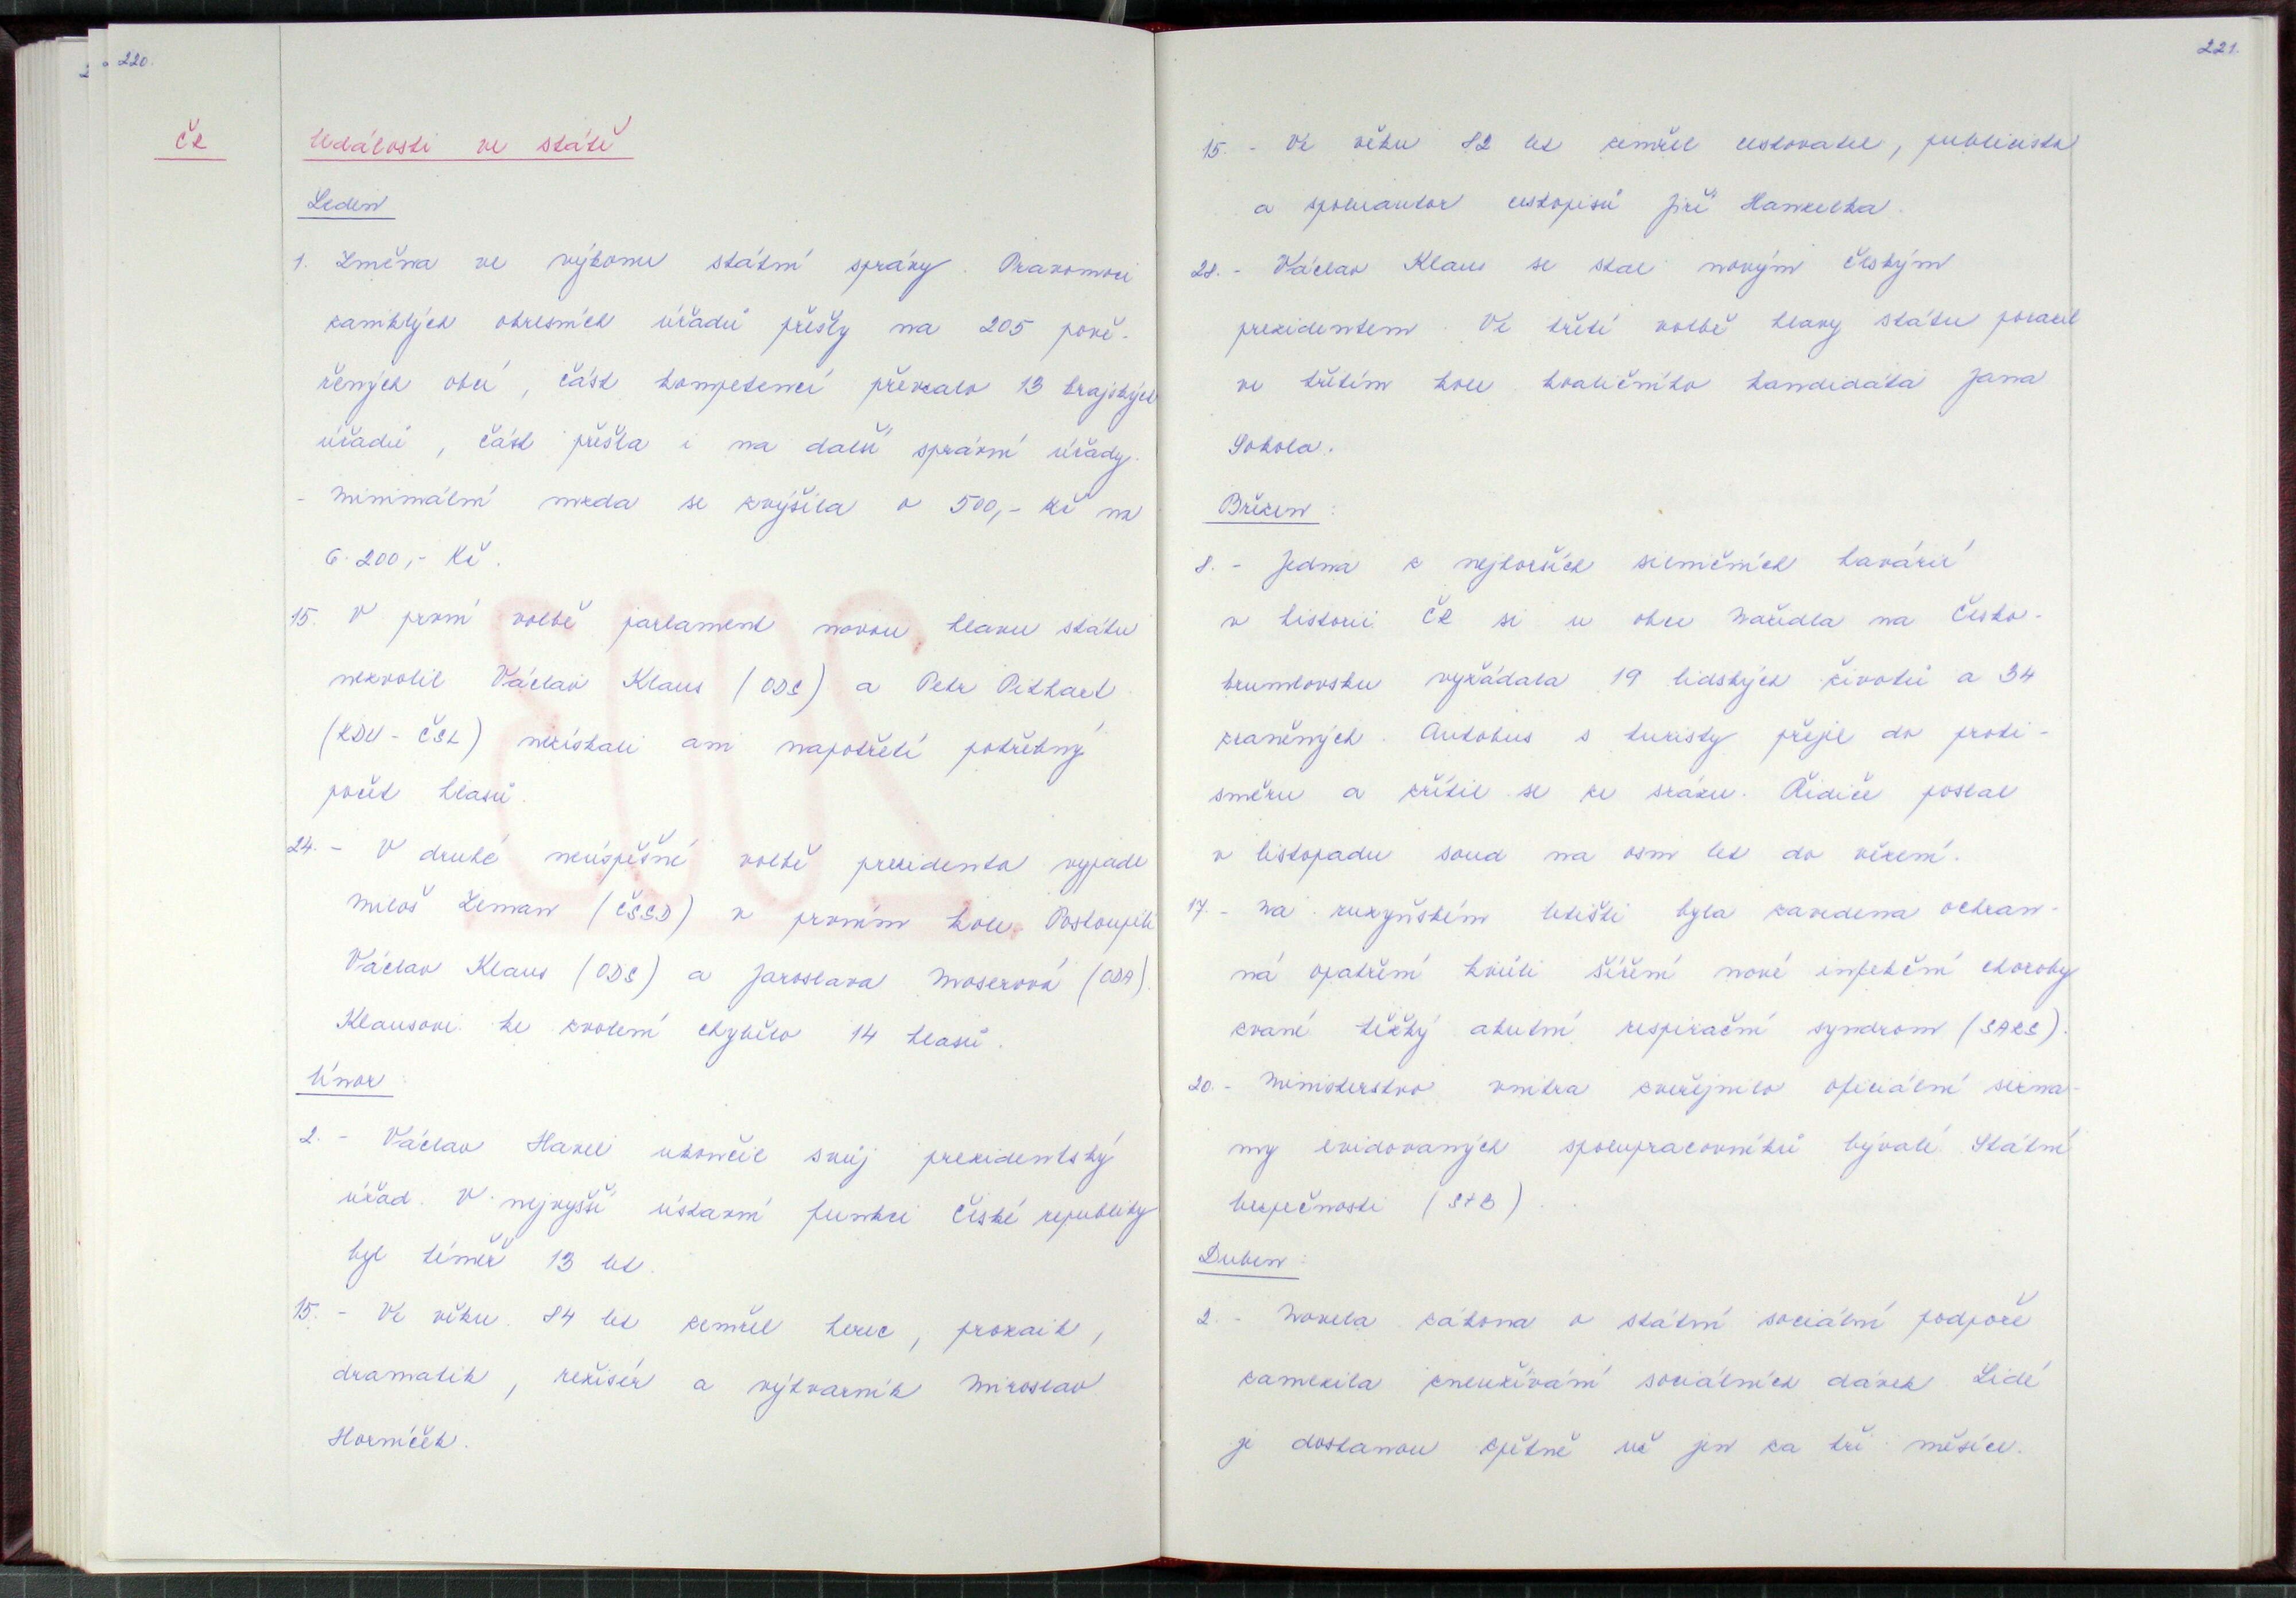 220.
ČR
Události ve státě
Leden
1. Změna ve výkonu státní správy. Pravomoci
zaniklých okresních úřadů přešly na 205 pově-
řených obcí, část kompetencí převzalo 13 krajských
úřadů, část přešla i na další správní úřady.
- Minimální mzda se zvýšila o 500,- Kč na
6.200,- Kč.
15. V první volbě parlament novou hlavu státu
nezvolil Václav Klaus (ODS) a Petr Pithart
(KDU - ČSL) nezískali ani napotřetí potřebný
počet hlasů.
24. - V druhé neúspěšné volbě prezidenta vypadl
Miloš Zeman (ČSSD) v prvním kole. Postoupili
Václav Klaus (ODS) a Jaroslava Moserová (ODA).
Klausovi ke zvolení chybělo 14 hlasů.
Únor:
2. - Václav Havel ukončil svůj prezidentský
úřad. V nejvyšší ústavní funkci České republiky
byl téměř 13 let.
15. - Ve věku 84 let zemřel herec, prozaik,
dramatik, režisér a výtvarník Miroslav
Horníček.
221.
15. - Ve věku 82 let zemřel cestovatel, publicista
a spoluautor cestopisů Jiří Hanzelka.
28. - Václav Klaus se stal novým českým
prezidentem. Ve třetí volbě hlavy státu porazil
ve třetím kole koaličního kandidáta Jana
Sokola.
Březen:
8. - Jedna z nejhorších silničních havárií
v historii ČR si u obce Nažidla na Česko-
krumlovsku vyžádala 19 lidských životů a 34
zraněných. Autobus s turisty přejel do proti-
směru a zřítil se ze srázu. Řidiče poslal
v listopadu soud na osm let do vězení.
17. - Na ruzyňském letišti byla zavedena ochran-
ná opatření kvůli šíření nové infekční choroby
zvané těžký akutní respirační syndrom (SARS).
20. - Ministerstvo vnitra zveřejnilo oficiální sezna-
my evidovaných spolupracovníků bývalé Státní
bezpečnosti (StB).
Duben:
2. - Novela zákona o státní sociální podpoře
zamezila zneužívání sociálních dávek. Lidé
je dostanou zpětně už jen za tři měsíce.